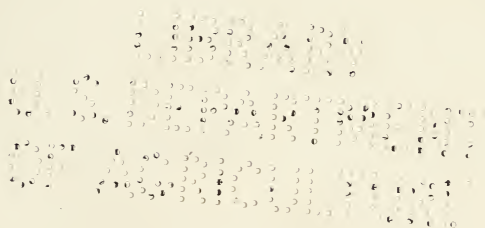 LIBRARY
U. S. DEPARTMENT
OF AGRICULTURE